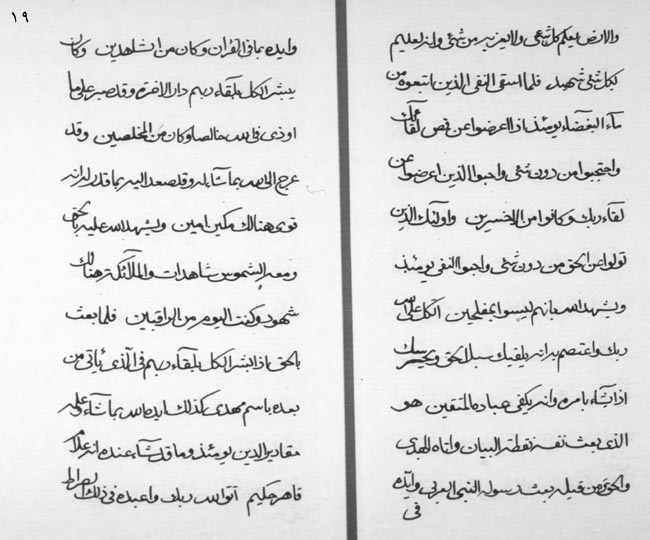 والارض يعلم كل شئ ولا يعزب من شئ وانه لعليم
بكل شئ شهيد فلما استقى النفى الذين اتبعوه من
ماء البغضاء يومئذ اذا اعرضوا عن قص لقائك
واحتجبوا من دون شئ واحبوا الذين اعرضوا عن
لقاء ربك وكانوا من الاخسرين واولئك الذين
تولوا عن الحق من دون شئ واحبوا النفى يومئذ
ويشهد الله بانهم ليسوا بمفلحين اتكل على الله
ربك واعتصم به انه يلقيك سبل الحق ويحرسك
اذا يشاء بامره وانه يكفى عباده المتقين هو
الذى بعث نفسه نقطة البيان واتاه الهدى
والحق ومن قبله بعث رسوله النبى العربى وايده
فى
١٩
وايده بما فى القران وكان من الشاهدين وكان
يبشر الكل بلقاء ربهم دار الاخرة وقد صبر على ما
اوذى فى الله خالصا وكان من المخلصين وقد
عرج الى الله بما شاء له وقد صعد اليه بما قدر له انه
قوى هنالك مكين امين ويشهد الله عليه بالحق
ومعه الشموس شاهدات والملائكة هنالك
شهود وكنت اليوم من الراقبين فلما بعث
بالحق اذا بشر الكل بلقاء ربهم فى الذى ياتى من
بعده باسم مهدى كذلك ايده الله بما شاء وعليه
مقادير الدين يومئذ وما قد شاء عنده انه علام
قاهر حكيم اتوا الله ربك واعبده فى ذلك الصراط